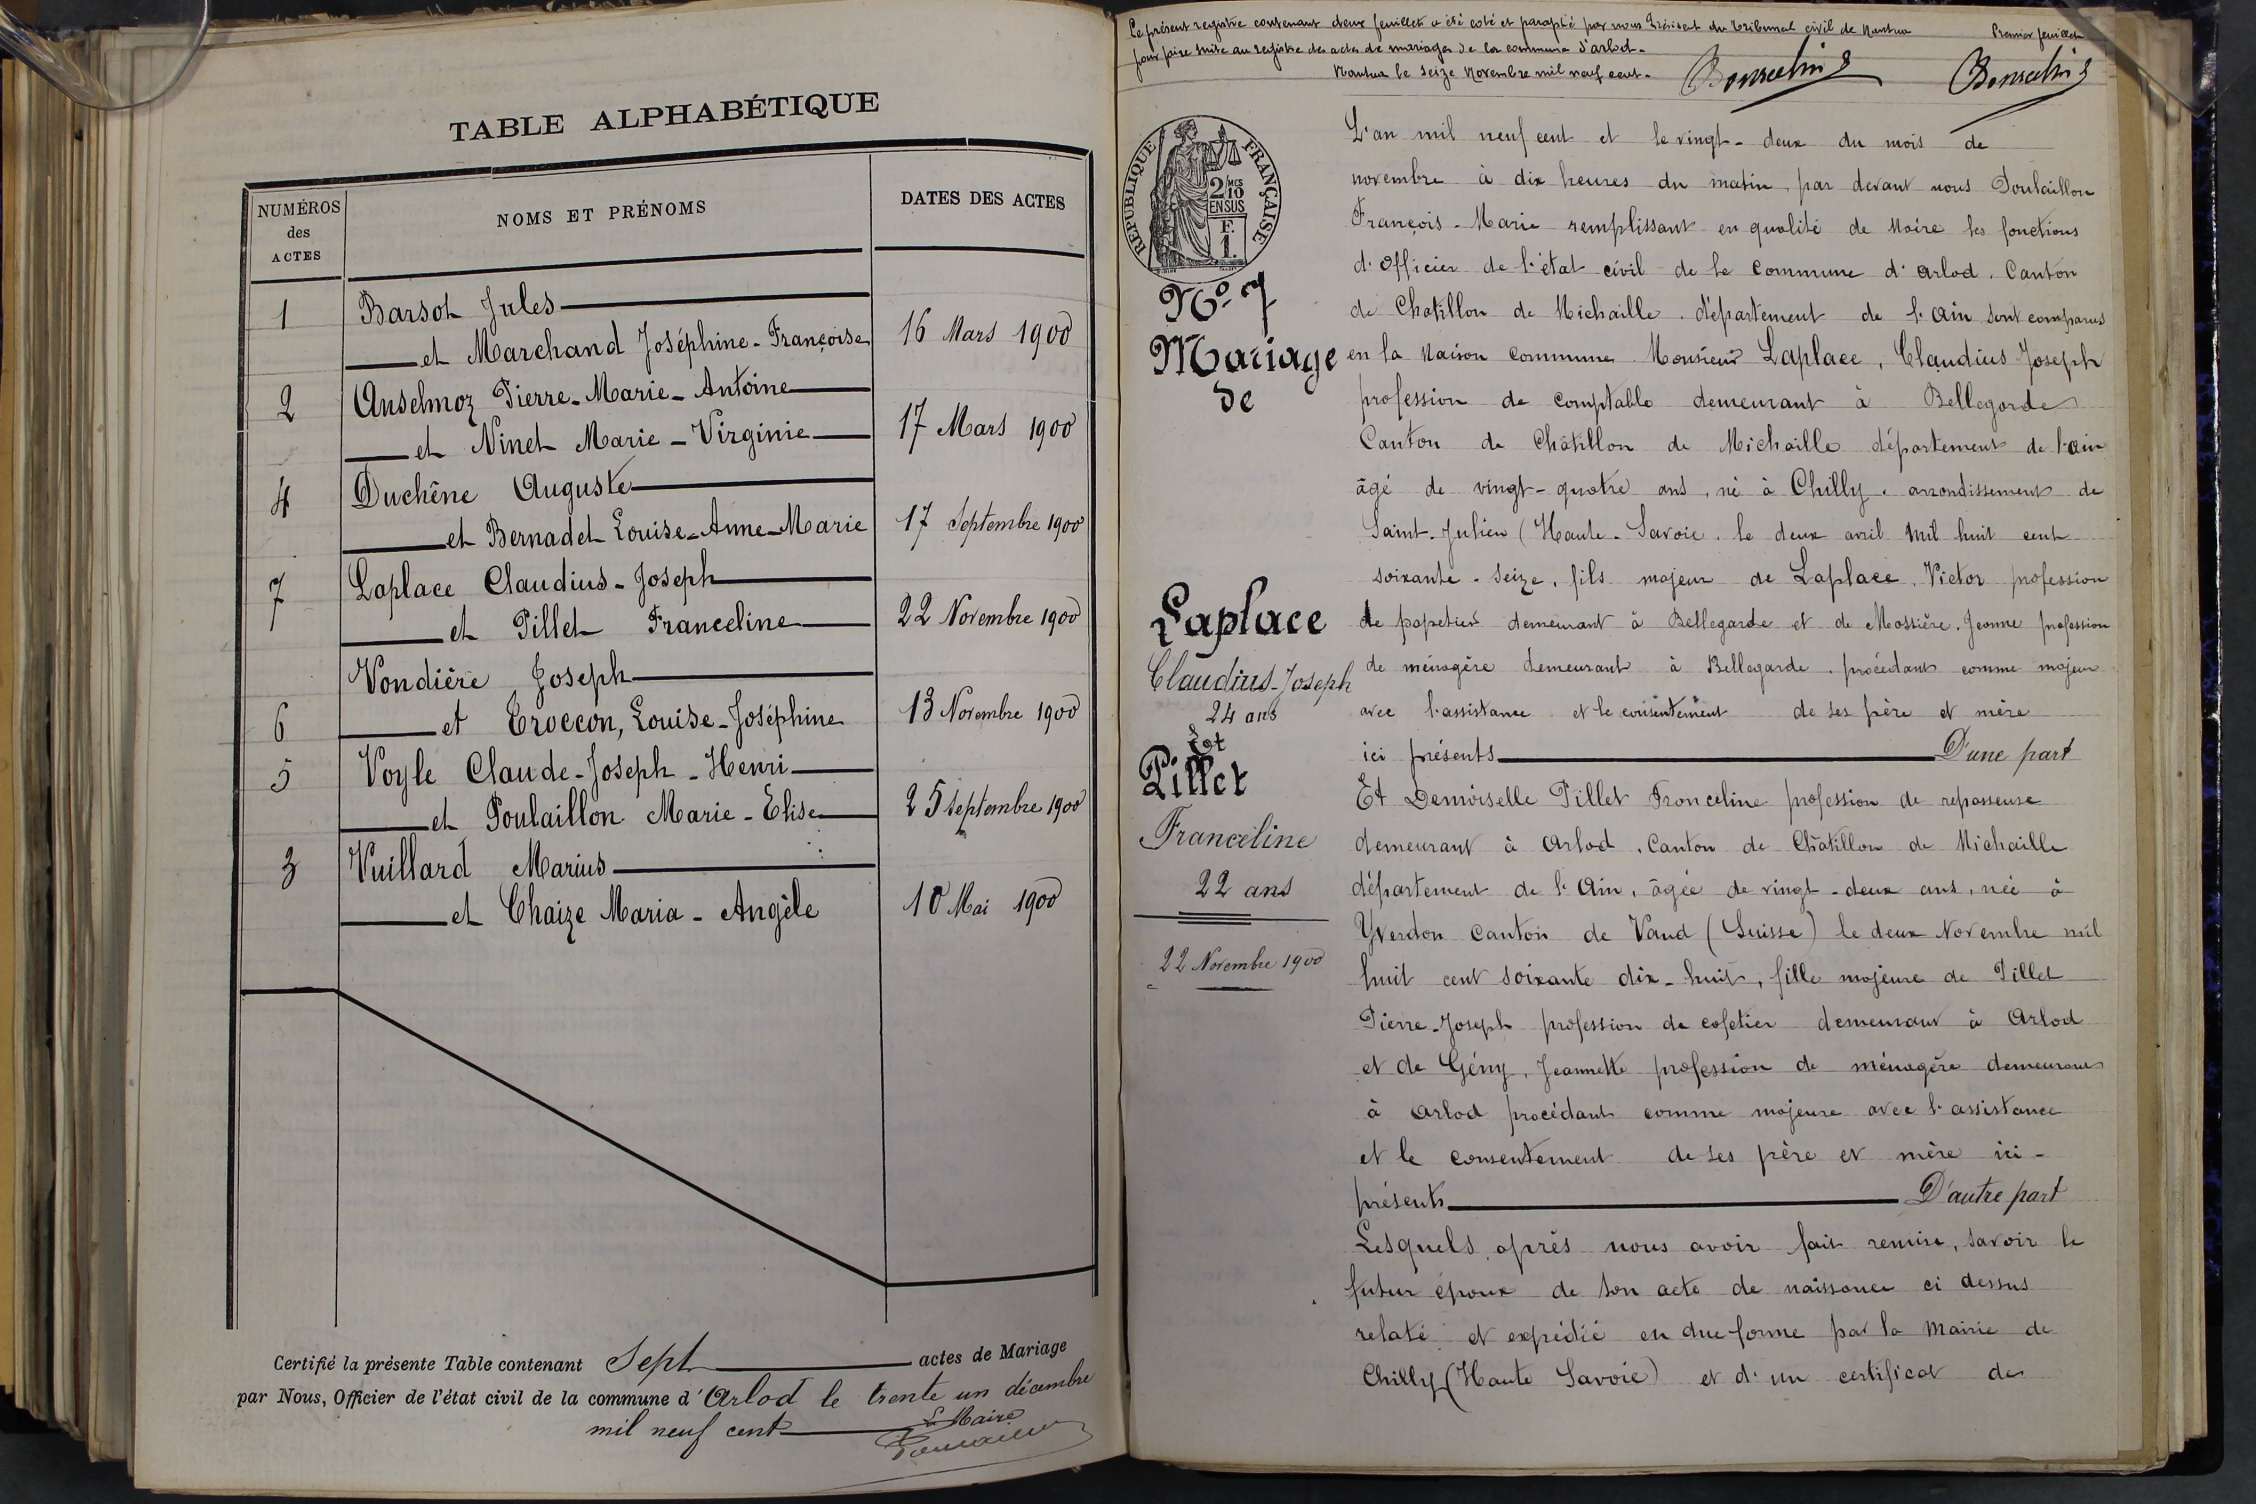 TABLE ALPHABÉTIQUE
NUMÉROS des ACTES
NOMS ET PRÉNOMS
DATES DES ACTES
1 Barsot Jules
et Marchand Joséphine-Françoise 16 Mars 1900
2 Anselmoz Pierre-Marie-Antoine
et Ninet Marie-Virginie 17 Mars 1900
4 Duchêne Auguste
et Bernadet Louise-Anne-Marie 17 Septembre 1900
7 Laplace Claudius-Joseph
et Pillet Franceline 22 Novembre 1900
Vondière Joseph
6 et Troccon, Louise-Joséphine 13 Novembre 1900
5 Voyle Claude-Joseph-Henri
et Poulaillon Marie-Elise 25 septembre 1900
3 Vuillard Marius
et Chaize Maria-Angèle 10 Mai 1900
Certifié la présente Table contenant Sept actes de Mariage
par Nous, Officier de l'état civil de la commune d'Arlod le trente un décembre
mil neuf cent
Le Maire
Le présent registre contenant deux feuillets a été coté et paraphé par nous Président du Tribunal civil de Nantua
Premier feuillet
pour faire suite au registre des actes de mariages de la commune d'Arlod.
Nantua le seize Novembre mil neuf cent.
RÉPUBLIQUE FRANÇAISE
2/10 MES
EN SUS
F.
1.
No 7
Mariage
de
Laplace
Claudius-Joseph
24 ans
Et
Pillet
Franceline
22 ans
22 Novembre 1900
L'an mil neuf cent et le vingt-deux du mois de
novembre à dix heures du matin, par devant nous Poulaillon
François-Marie remplissant en qualité de Maire les fonctions
d'Officier de l'état civil de la Commune d'Arlod. Canton
de Chatillon de Michaille. département de l'Ain sont comparus
en la Maison Commune Monsieur Laplace, Claudius Joseph
profession de comptable demeurant à Bellegarde
Canton de Châtillon de Michaille département de l'ain
âgé de vingt-quatre ans, né à Chilly. arrondissement de
Saint-Julien (Haute-Savoie. le deux avril mil huit cent
soixante-seize, fils majeur de Laplace. Victor profession
de papetier demeurant à Bellegarde et de Mossière. Jeanne profession
de ménagère demeurant à Bellegarde. procédant comme majeur
avec l'assistance et le consentement de ses père et mère
ici présents D'une part
Et Demoiselle Pillet Franceline profession de repasseuse
demeurant à Arlod. Canton de Châtillon de Michaille
département de l'Ain, âgée de vingt-deux ans, née à
Yverdon Canton de Vaud (Suisse) le deux Novembre mil
huit cent soixante dix-huit, fille majeure de Pillet
Pierre-Joseph profession de cafetier demeurant à Arlod
et de Gény, Jeannette profession de ménagère demeurant
à Arlod procédant comme majeure avec l'assistance
et le consentement de ses père et mère ici-
présents D'autre part
Lesquels, après nous avoir fait remise, savoir le
futur époux de son acte de naissance ci dessus
relaté et expédié en due forme par la Mairie de
Chilly (Haute Savoie) et d'un certificat de